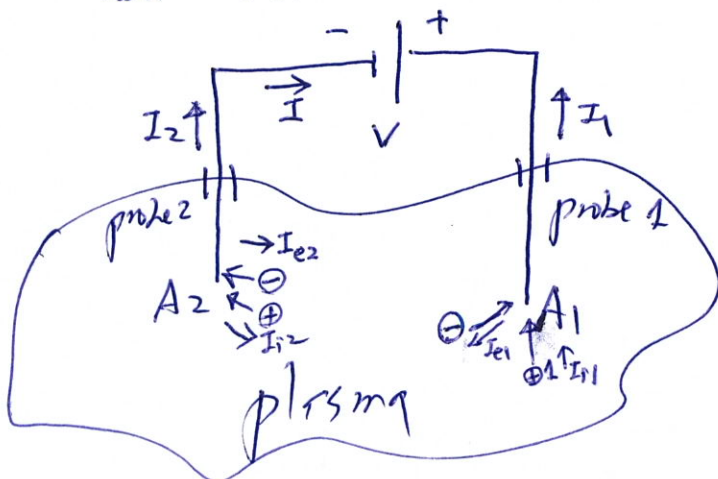 - +
I₂ I V I₁
probe2 probe 1
I_e2
⊖
A₂ A₁
⊕ ⊖ I_e1
I_i2 ⊕ I_i1
plasma